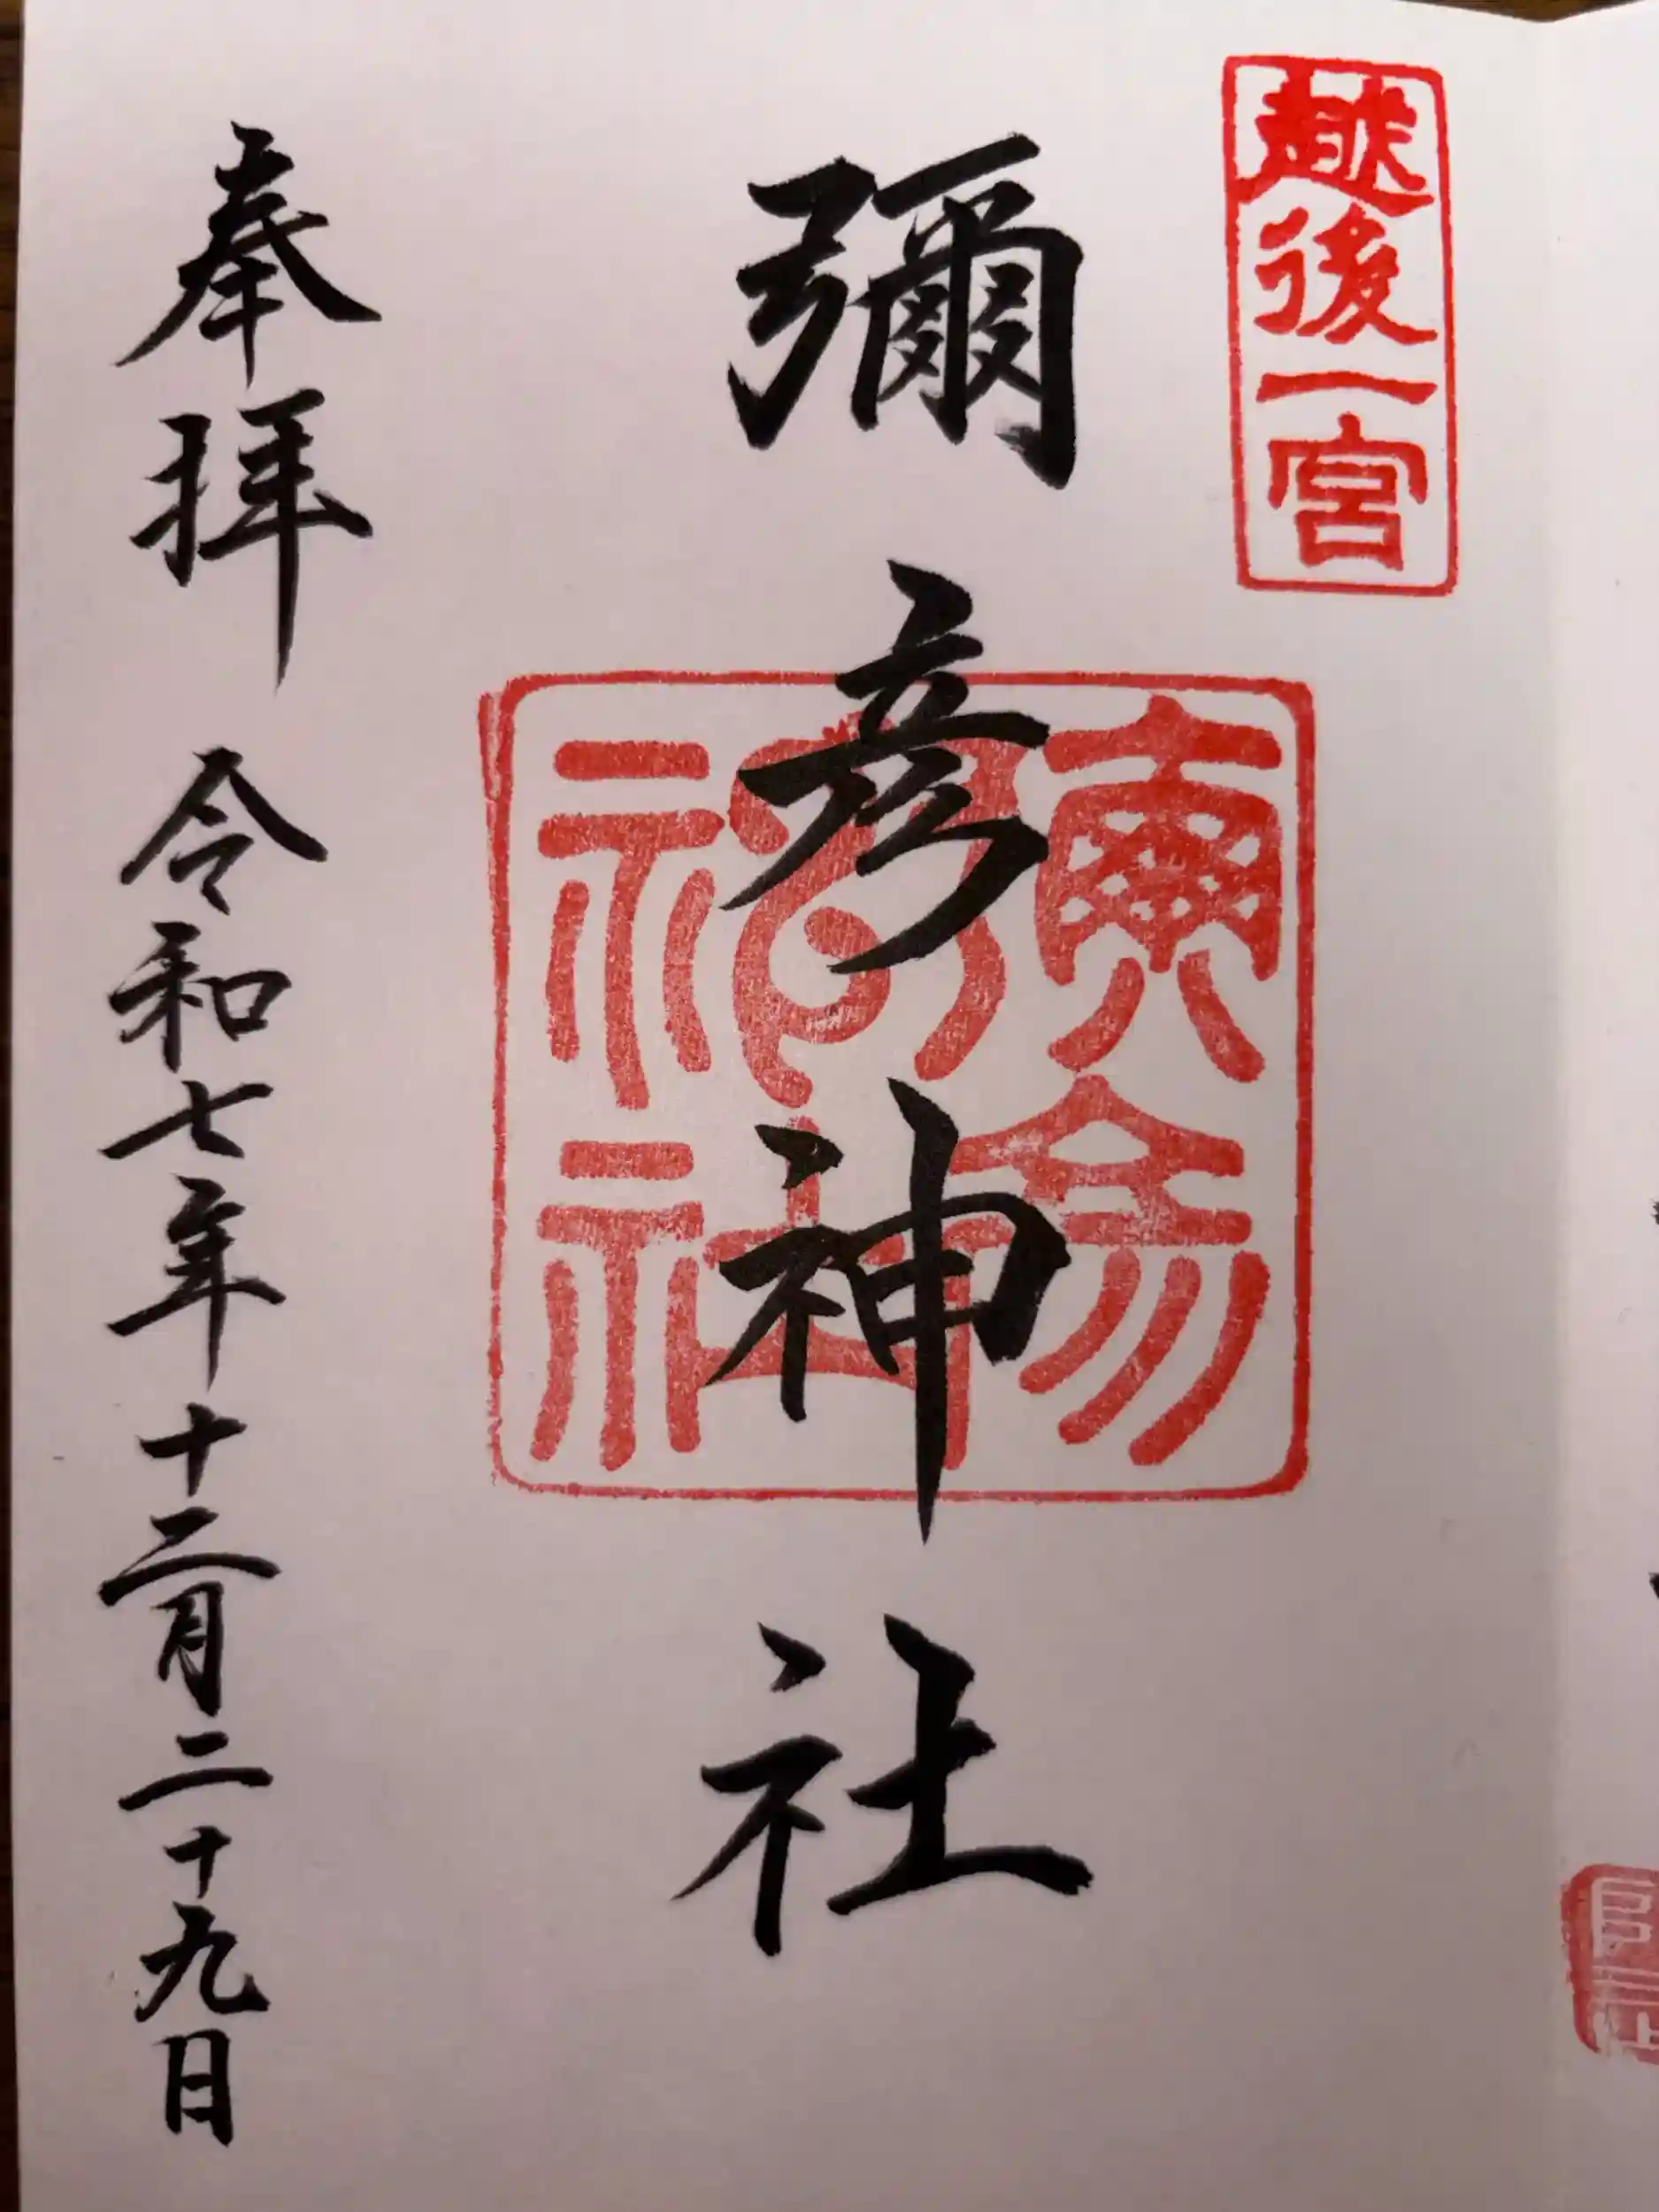 越後一宮
彌彦神社
奉拝 令和七年十二月二十九日